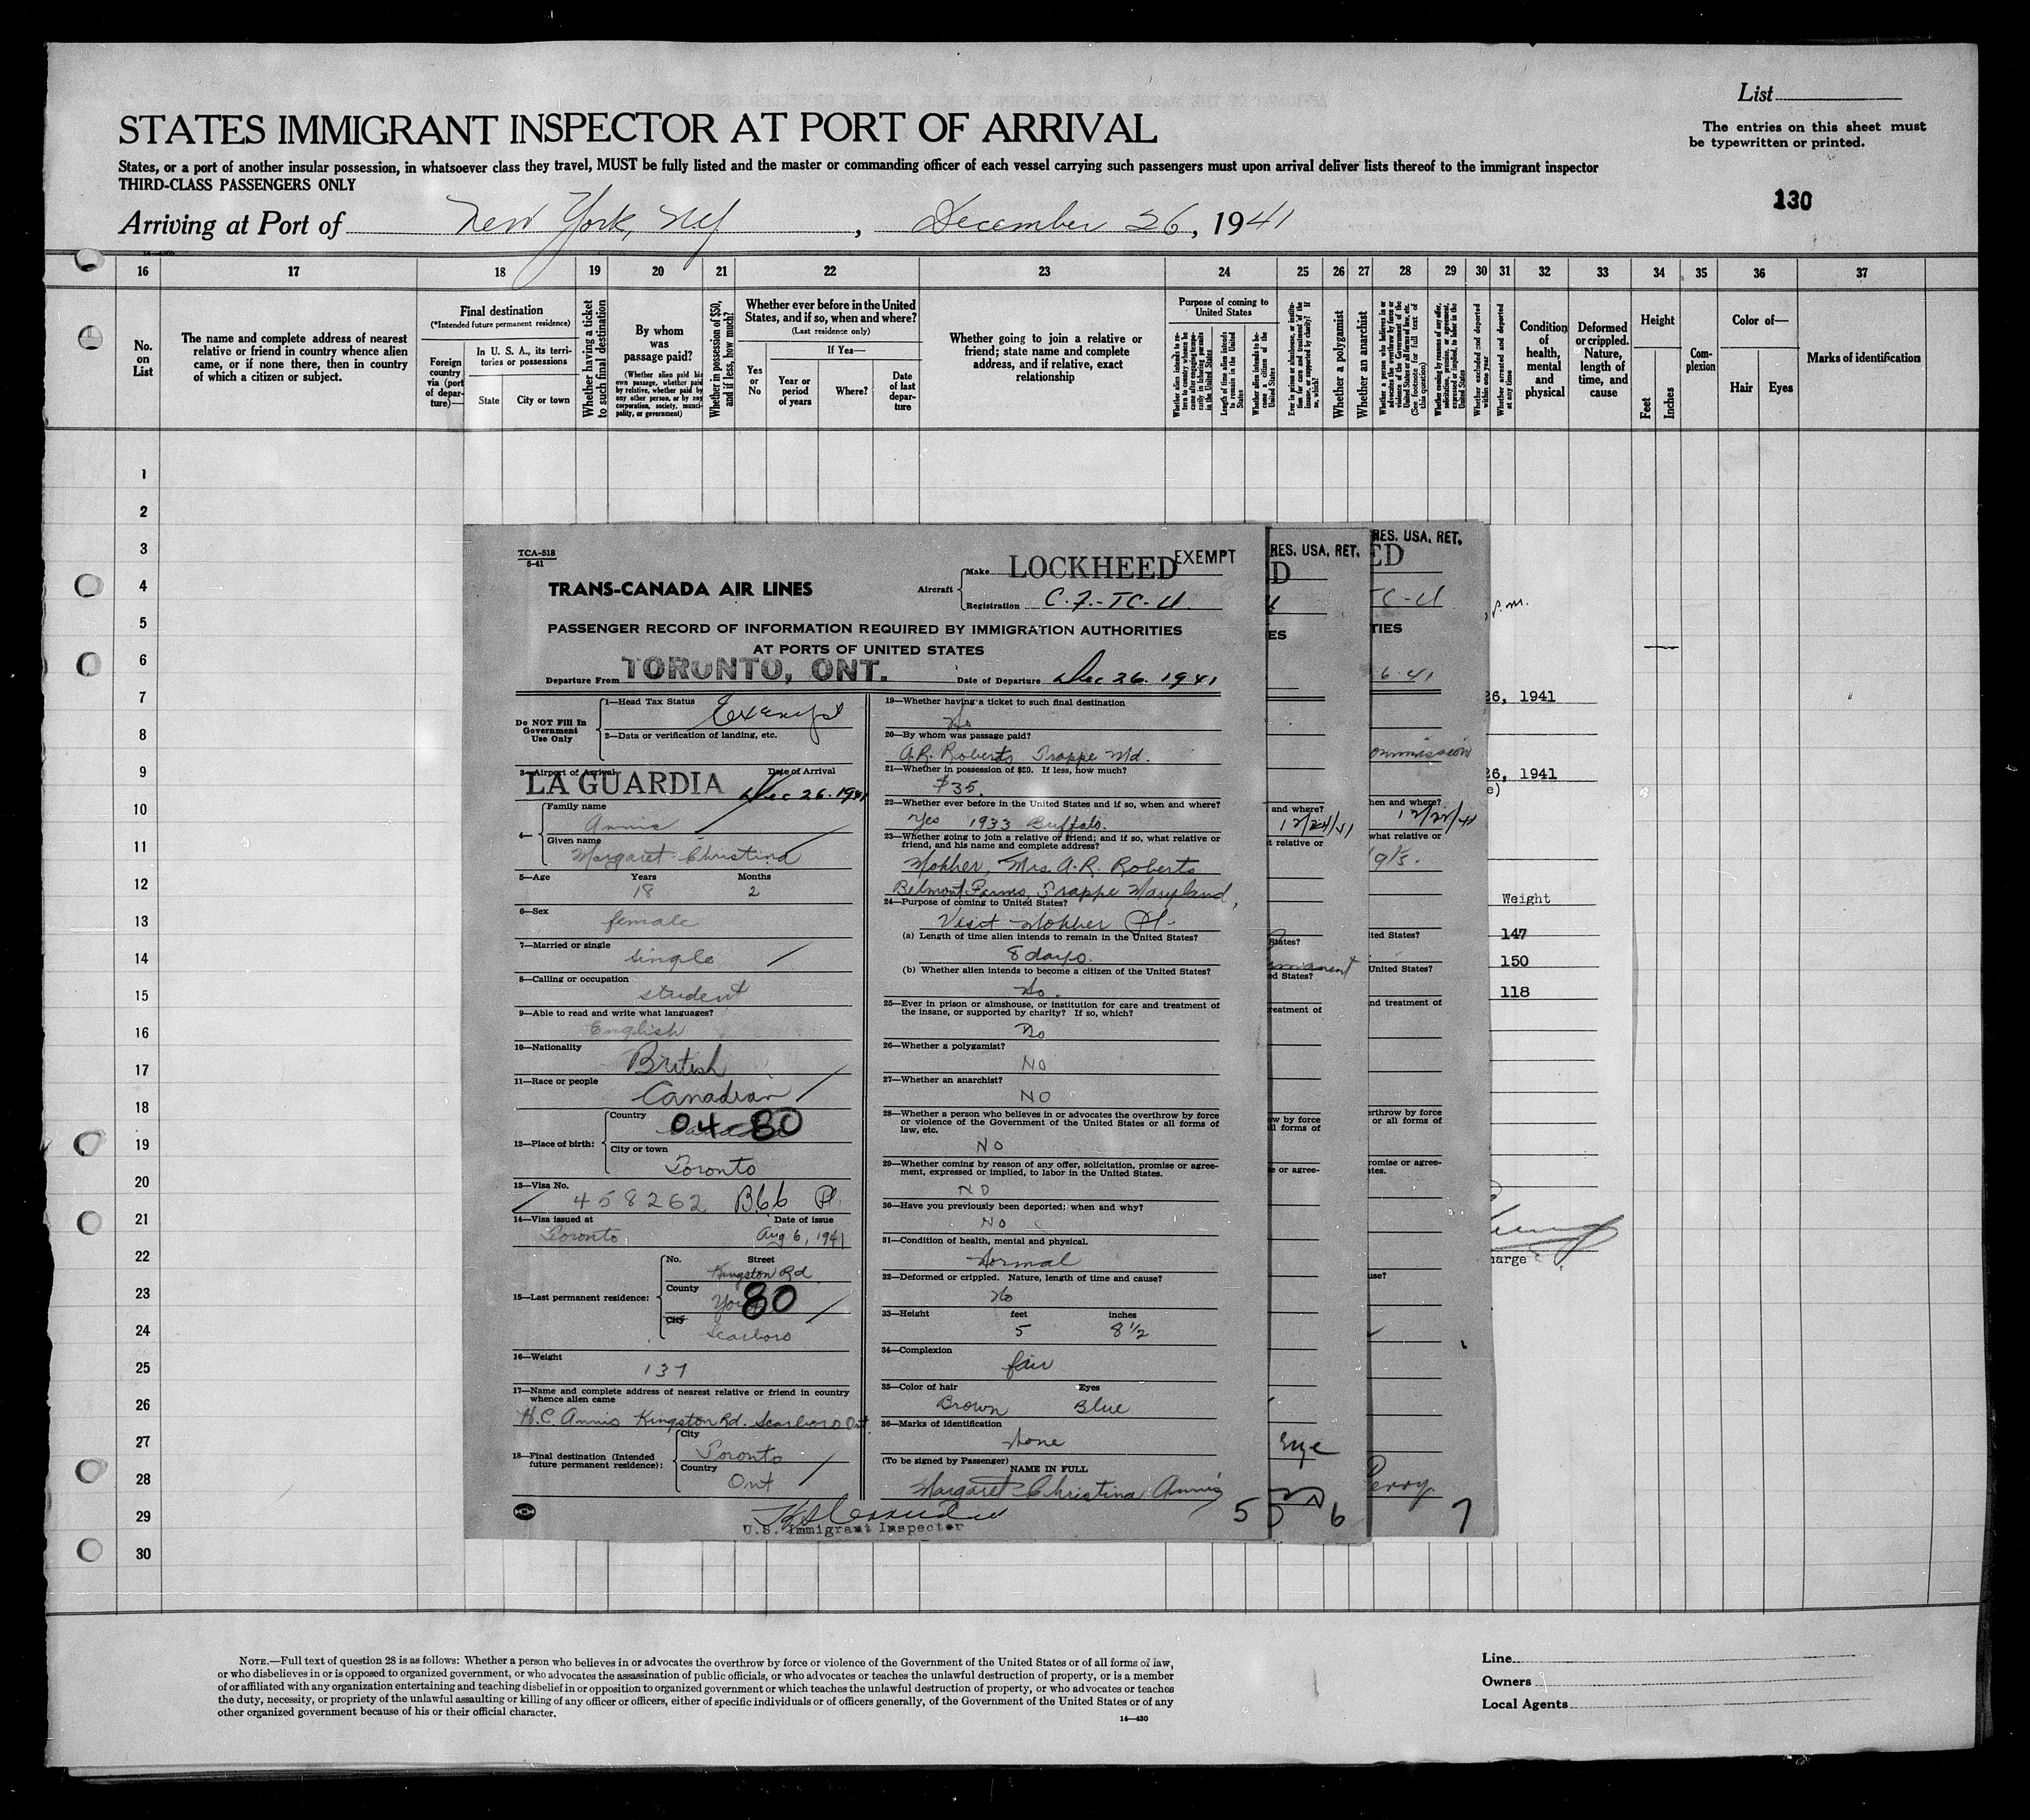 List
STATES IMMIGRANT INSPECTOR AT PORT OF ARRIVAL
The entries on this sheet must
be typewritten or printed.
States, or a port of another insular possession, in whatsoever class they travel, MUST be fully listed and the master or commanding officer of each vessel carrying such passengers must upon arrival deliver lists thereof to the immigrant inspector
THIRD-CLASS PASSENGERS ONLY
130
Arriving at Port of New York, NY, December 26, 1941
16 17 18 19 20 21 22 23 24 25 26 27 28 29 30 31 32 33 34 35 36 37
No.
on
List
The name and complete address of nearest
relative or friend in country whence alien
came, or if none there, then in country
of which a citizen or subject.
Final destination
(*Intended future permanent residence)
Foreign
country
via (port
of depar-
ture)—
In U. S. A., its terri-
tories or possessions
State
City or town
Whether having a ticket
to such final destination
By whom
was
passage paid?
(Whether alien paid his
own passage, whether paid
by relative, whether paid by
any other person, or by any
corporation, society, munici-
pality, or government)
Whether in possession of $50,
and if less, how much?
Whether ever before in the United
States, and if so, when and where?
(Last residence only)
If Yes—
Yes
or
No
Year or
period
of years
Where?
Date
of last
depar-
ture
Whether going to join a relative or
friend; state name and complete
address, and if relative, exact
relationship
Purpose of coming to
United States
Whether alien intends to re-
turn to country whence he
came after engaging tempo-
rarily in laboring pursuits
in the United States
Length of time alien intends
to remain in the United
States
Whether alien intends to be-
come a citizen of the
United States
Ever in prison or almshouse, or institu-
tion for care and treatment of the
insane, or supported by charity? If
so, which?
Whether a polygamist
Whether an anarchist
Whether a person who believes in or
advocates the overthrow by force or
violence of the Government of the
United States or all forms of law, etc.
(See footnote for full text of
this question)
Whether coming by reasons of any offer,
solicitation, promise, or agreement,
expressed or implied, to labor in the
United States
Whether excluded and deported
within one year
Whether arrested and deported
at any time
Condition
of
health,
mental
and
physical
Deformed
or crippled.
Nature,
length of
time, and
cause
Height
Feet
Inches
Com-
plexion
Color of—
Hair
Eyes
Marks of identification
1
2
3
4
5
6
7
8
9
10
11
12
13
14
15
16
17
18
19
20
21
22
23
24
25
26
27
28
29
30
TCA-518
5-41
TRANS-CANADA AIR LINES
Aircraft
Make LOCKHEED
EXEMPT
Registration C.F.-TC-U.
PASSENGER RECORD OF INFORMATION REQUIRED BY IMMIGRATION AUTHORITIES
AT PORTS OF UNITED STATES
Departure From TORONTO, ONT.
Date of Departure Dec 26. 1941
Do NOT Fill In
Government
Use Only
1—Head Tax Status Exempt
2—Data or verification of landing, etc.
3—Airport of Arrival
Date of Arrival
LA GUARDIA Dec 26. 1941
4—
Family name
Annis
Given name
Margaret Christina
5—Age
Years
Months
18
2
6—Sex
female
7—Married or single
single
8—Calling or occupation
student
9—Able to read and write what languages?
English
10—Nationality
British
11—Race or people
Canadian
12—Place of birth:
Country
04-80
City or town
Toronto
13—Visa No.
458262 B66
14—Visa issued at
Date of issue
Toronto
Aug 6, 1941
15—Last permanent residence:
No.
Street
Kingston Rd
County
York 80
City
Scarboro
16—Weight
137
17—Name and complete address of nearest relative or friend in country
whence alien came
H.C. Annis Kingston Rd. Scarboro Ont
18—Final destination (Intended
future permanent residence):
City
Toronto
Country
Ont
19—Whether having a ticket to such final destination
No
20—By whom was passage paid?
A.R. Roberts Trappe Md.
21—Whether in possession of $50. If less, how much?
$35.
22—Whether ever before in the United States and if so, when and where?
Yes 1933 Buffalo.
23—Whether going to join a relative or friend; and if so, what relative or
friend, and his name and complete address?
Mother, Mrs. A.R. Roberts
Belmont Farms, Trappe Maryland,
24—Purpose of coming to United States?
Visit Mother
(a) Length of time alien intends to remain in the United States?
8 days.
(b) Whether alien intends to become a citizen of the United States?
No.
25—Ever in prison or almshouse, or institution for care and treatment of
the insane, or supported by charity? If so, which?
No
26—Whether a polygamist?
NO
27—Whether an anarchist?
NO
28—Whether a person who believes in or advocates the overthrow by force
or violence of the Government of the United States or all forms of
law, etc.
NO
29—Whether coming by reason of any offer, solicitation, promise or agree-
ment, expressed or implied, to labor in the United States.
NO
30—Have you previously been deported; when and why?
NO
31—Condition of health, mental and physical.
Normal
32—Deformed or crippled. Nature, length of time and cause?
No
33—Height
feet
inches
5
8 1/2
34—Complexion
fair
35—Color of hair
Eyes
Brown
Blue
36—Marks of identification
None
(To be signed by Passenger)
NAME IN FULL
Margaret Christina Annis
U.S. Immigrant Inspector
5
RES. USA, RET.
D
ES
and where?
12/24/41
t relative or
States?
ed States?
reatment of
ow by force
ll forms of
e or agree-
6
RES. USA, RET.
ED
TC-U
TIES
6-41
ommission
hen and where?
12/22/41
what relative or
ited States?
United States?
nd treatment of
erthrow by force
or all forms of
romise or agree-
tes.
use?
Perry
7
P.M.
26, 1941
26, 1941
e)
Weight
147
150
118
harge
NOTE.—Full text of question 28 is as follows: Whether a person who believes in or advocates the overthrow by force or violence of the Government of the United States or of all forms of law,
or who disbelieves in or is opposed to organized government, or who advocates the assassination of public officials, or who advocates or teaches the unlawful destruction of property, or is a member
of or affiliated with any organization entertaining and teaching disbelief in or opposition to organized government or which teaches the unlawful destruction of property, or who advocates or teaches
the duty, necessity, or propriety of the unlawful assaulting or killing of any officer or officers, either of specific individuals or of officers generally, of the Government of the United States or of any
other organized government because of his or their official character.
14—430
Line
Owners
Local Agents